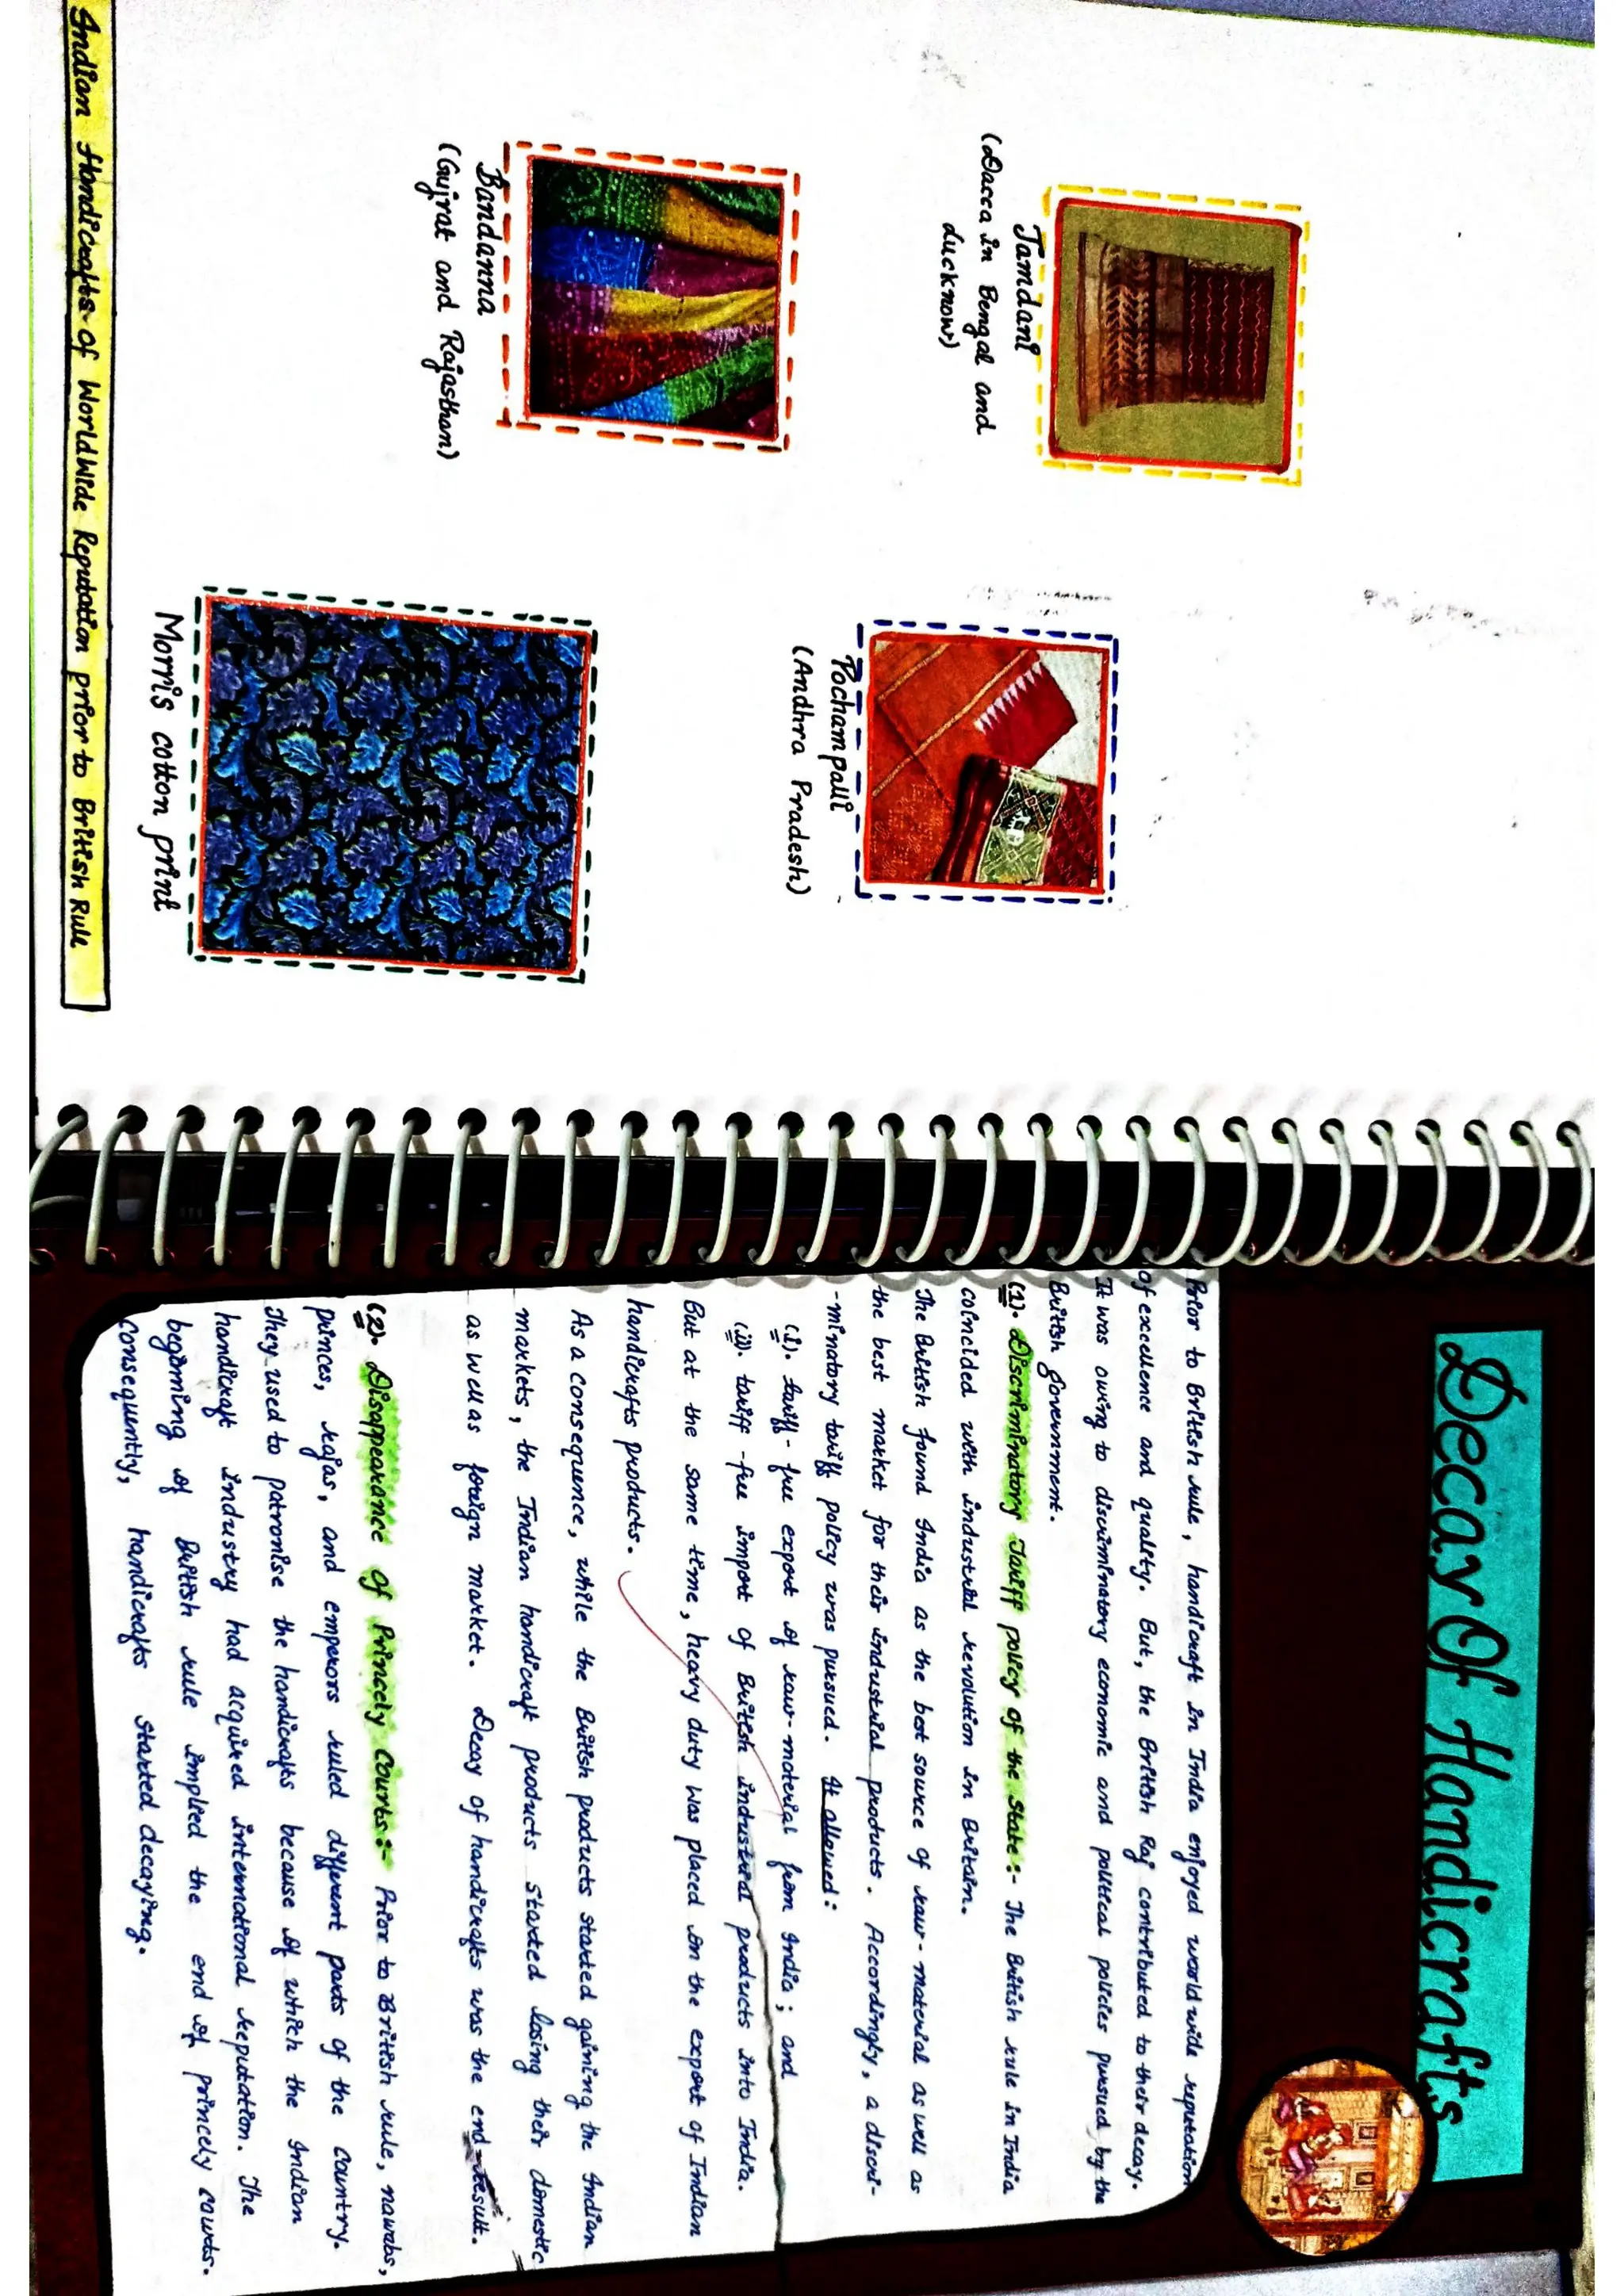 Jamdani
(Dacca in Bengal and
Lucknow)
Pochampalli
(Andhra Pradesh)
Bandanna
(Gujrat and Rajasthan)
Morris cotton print
Indian Handicrafts of WorldWide Reputation prior to British Rule
Decay Of Handicrafts
Prior to British rule, handicraft in India enjoyed world wide reputation
of excellence and quality. But, the British Raj contributed to their decay.
It was owing to discriminatory economic and political policies pursued by the
British government.
(1). Discriminatory Tariff policy of the State:- The British rule in India
coincided with industrial revolution in Britain.
The British found India as the best source of raw-material as well as
the best market for their industrial products. Accordingly, a discri-
-minatory tariff policy was pursued. It allowed:
(i). tariff-free export of raw-material from India; and
(ii). tariff-free import of British industrial products into India.
But at the same time, heavy duty was placed on the export of Indian
handicrafts products.
As a consequence, while the British products started gaining the Indian
markets, the Indian handicraft products started losing their domestic
as well as foreign market. Decay of handicrafts was the end-result.
(2). Disappearance of Princely Courts:- Prior to British rule, nawabs,
princes, rajas, and emperors ruled different parts of the country.
They used to patronise the handicrafts because of which the Indian
handicraft industry had acquired international reputation. The
beginning of British rule implied the end of princely courts.
consequently, handicrafts started decaying.